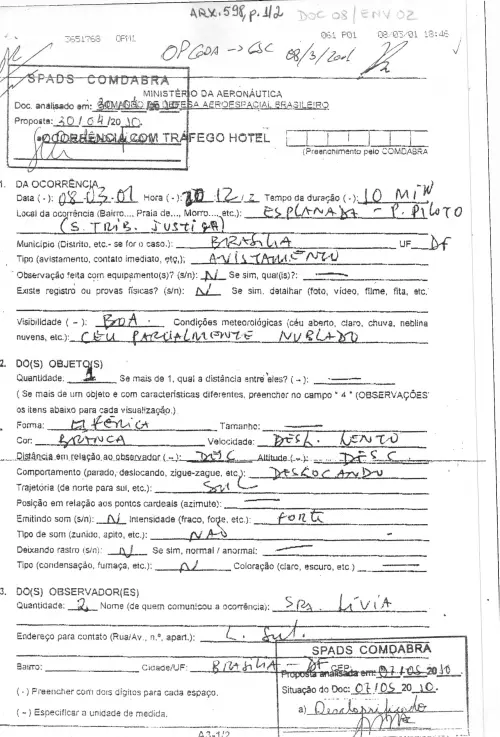 ARX.598, p.1/2 DOC 08/ENV 02
3651768 OPM1 061 P01 08/03/01 18:46
OPGODA → GSC 08/3/2001
SPADS COMDABRA
MINISTÉRIO DA AERONÁUTICA
Doc. analisado em: COMANDO DE DEFESA AEROESPACIAL BRASILEIRO
Proposta: 20/04/2010
OCORRÊNCIA COM TRÁFEGO HOTEL
(Preenchimento pelo COMDABRA
1. DA OCORRÊNCIA
Data (-): 08-03-01 Hora (-): 20 12/Z Tempo de duração (-): 10 MIN
Local da ocorrência (Bairro..., Praia de..., Morro..., etc.): ESPLANADA - P. PILOTO
(S. TRIB. JUSTIÇA)
Município (Distrito, etc.- se for o caso.): BRASÍLIA UF Df
Tipo (avistamento, contato imediato, etc.): AVISTAMENTO
Observação feita com equipamento(s)? (s/n): N Se sim, qual(is)?:
Existe registro ou provas físicas? (s/n): N Se sim, detalhar (foto, vídeo, filme, fita, etc.
Visibilidade ( ~ ): BOA. Condições meteorológicas (céu aberto, claro, chuva, neblina
nuvens, etc.): CÉU PARCIALMENTE NUBLADO
2. DO(S) OBJETO(S)
Quantidade: 1 Se mais de 1, qual a distância entre eles? ( ~ ):
( Se mais de um objeto e com características diferentes, preencher no campo " 4 " (OBSERVAÇÕES
os itens abaixo para cada visualização.)
Forma: ESFÉRICA Tamanho:
Cor: BRANCA Velocidade: DESL. LENTO
Distância em relação ao observador ( ~ ): DESC Altitude ( ~ ): DESC
Comportamento (parado, deslocando, zigue-zague, etc.): DESLOCANDO
Trajetória (de norte para sul, etc.): SUL
Posição em relação aos pontos cardeais (azimute):
Emitindo som (s/n): N Intensidade (fraco, forte, etc.): forte
Tipo de som (zunido, apito, etc.): NÃO
Deixando rastro (s/n): N Se sim, normal / anormal:
Tipo (condensação, fumaça, etc.): N Coloração (claro, escuro, etc.)
3. DO(S) OBSERVADOR(ES)
Quantidade: 2 Nome (de quem comunicou a ocorrência): SRA. LÍVIA
Endereço para contato (Rua/Av., n.º, apart.): L. Sul.
Bairro: Cidade/UF: BRASÍLIA - DF CEP:
SPADS COMDABRA
Proposta analisada em: 07/05 2010
Situação do Doc: 07/05 2010.
a) Desclassificado
( - ) Preencher com dois dígitos para cada espaço.
( ~ ) Especificar a unidade de medida.
A3-1/2